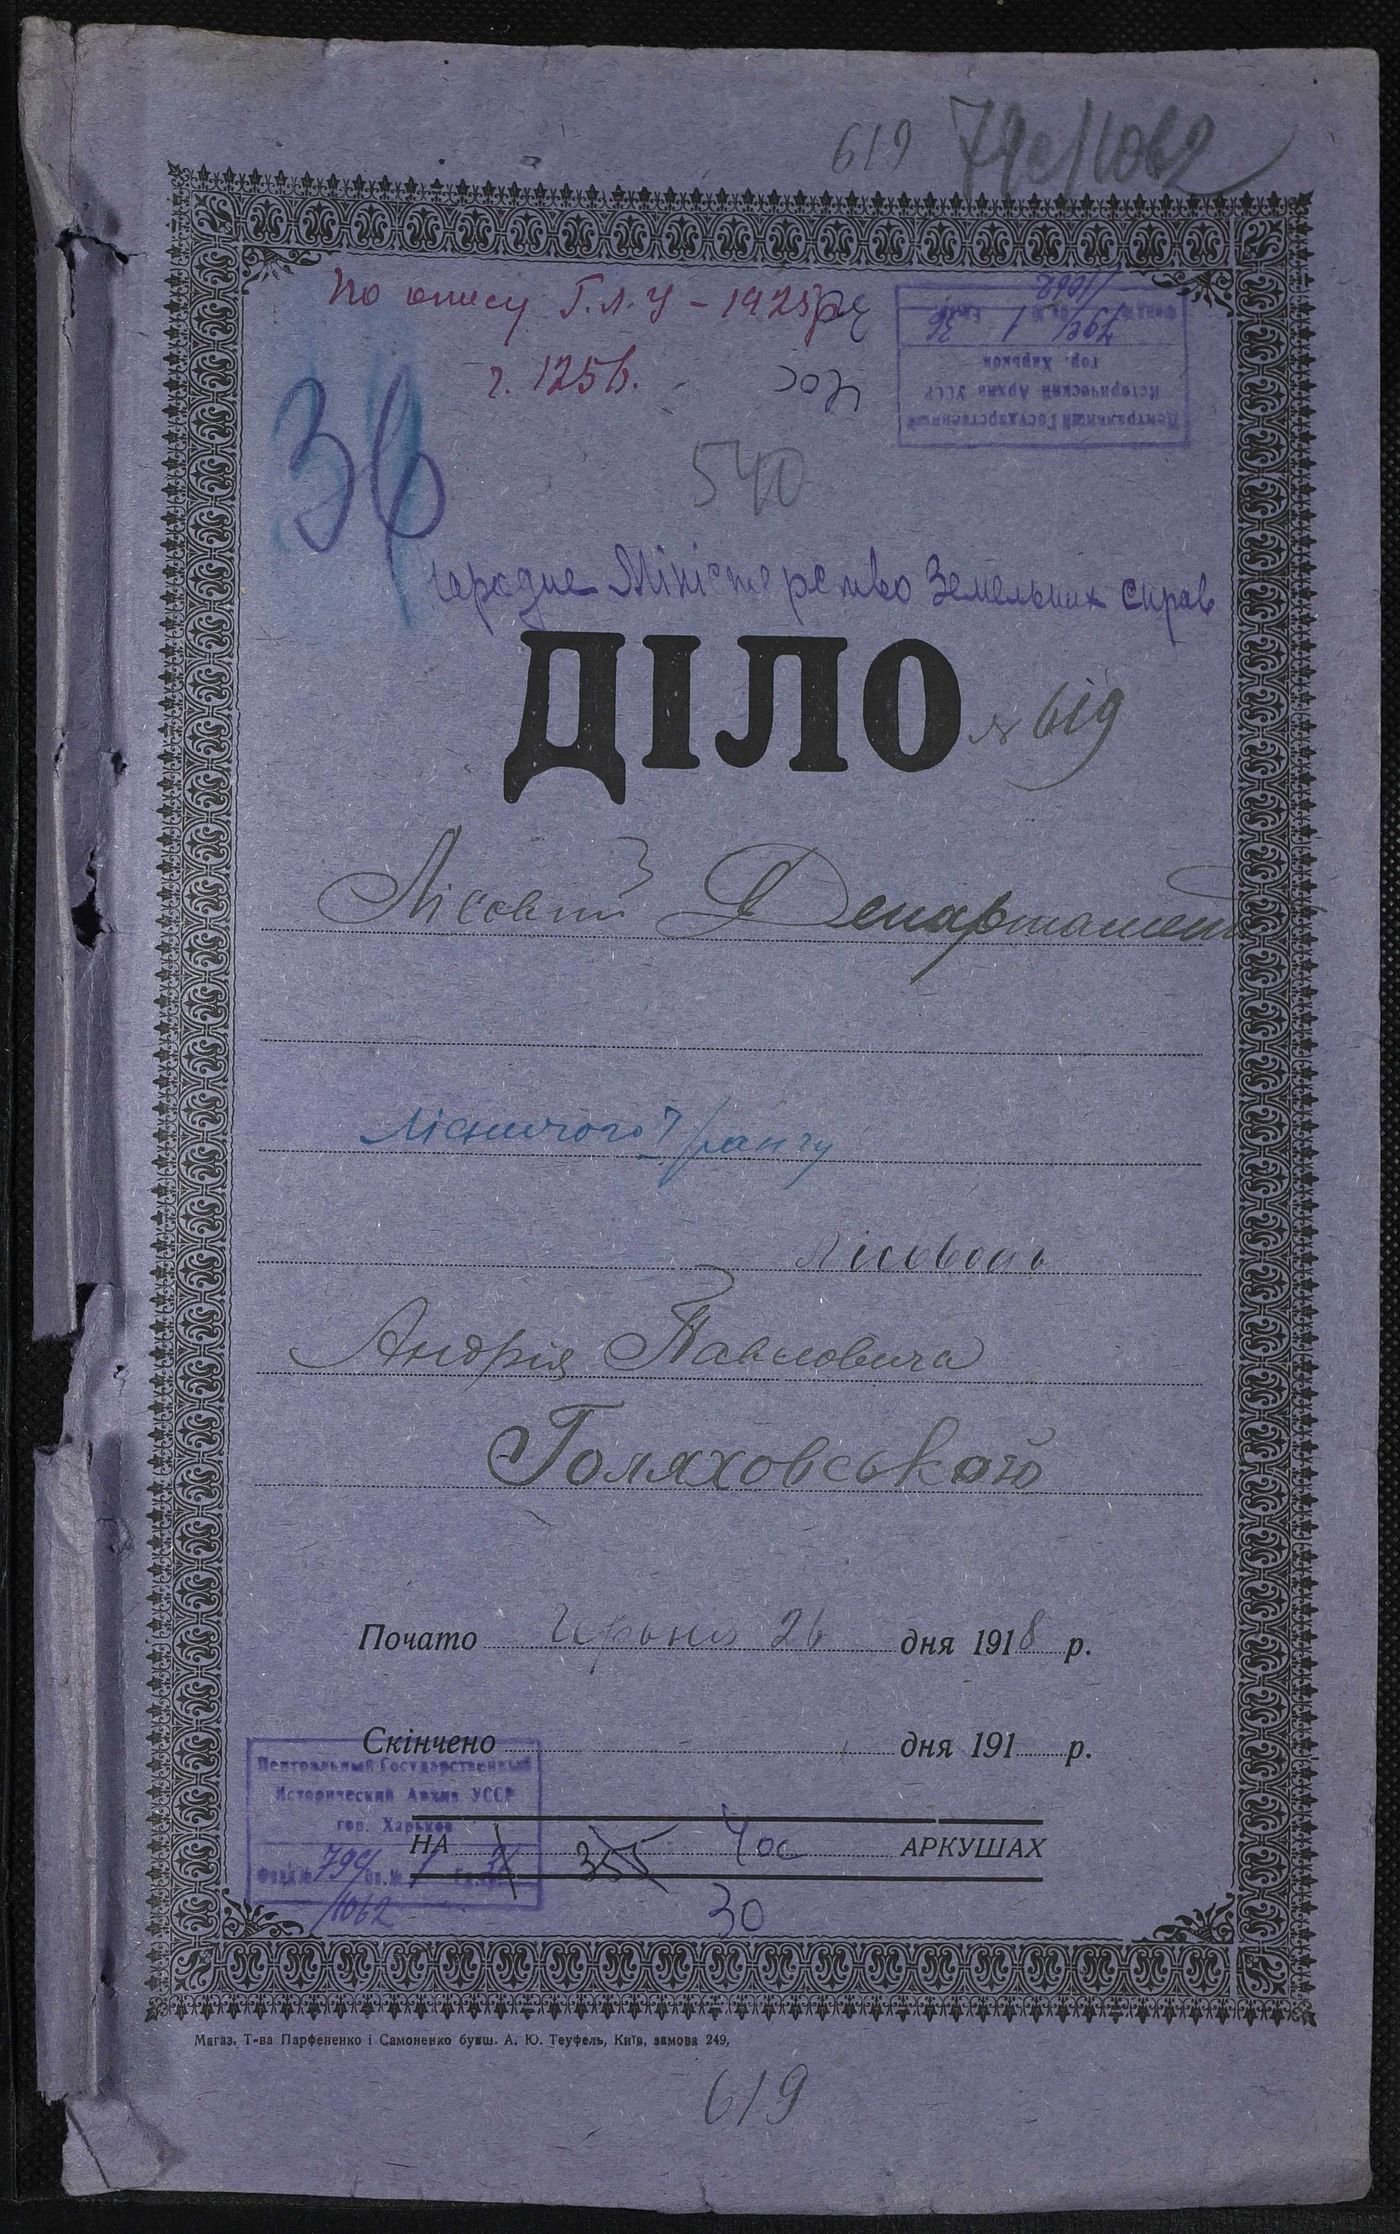 619 79с/1062
По опису Г.Л.У - 1925р
ч. 125в.
Центральный Государственный
Исторический Архив УССР
гор. Харьков
Фонд № 79с/1062 Оп. № 1 Ед.хр. 36
36
540
Народне Міністерство Земельних справ
ДІЛО № 619
Лісовий Департамент
Лісничого 7 рангу
Андрія Павловича
Голяховського
Почато Червня 26 дня 1918 р.
Скінчено дня 191 р.
Центральный Государственный
Исторический Архив УССР
гор. Харьков
Фонд № 79с/1062 Оп. № 1 Ед.хр. 36
НА АРКУШАХ
30
Магаз. Т-ва Парфененко і Самоненко бувш. А. Ю. Теуфель, Київ, замова 249.
619